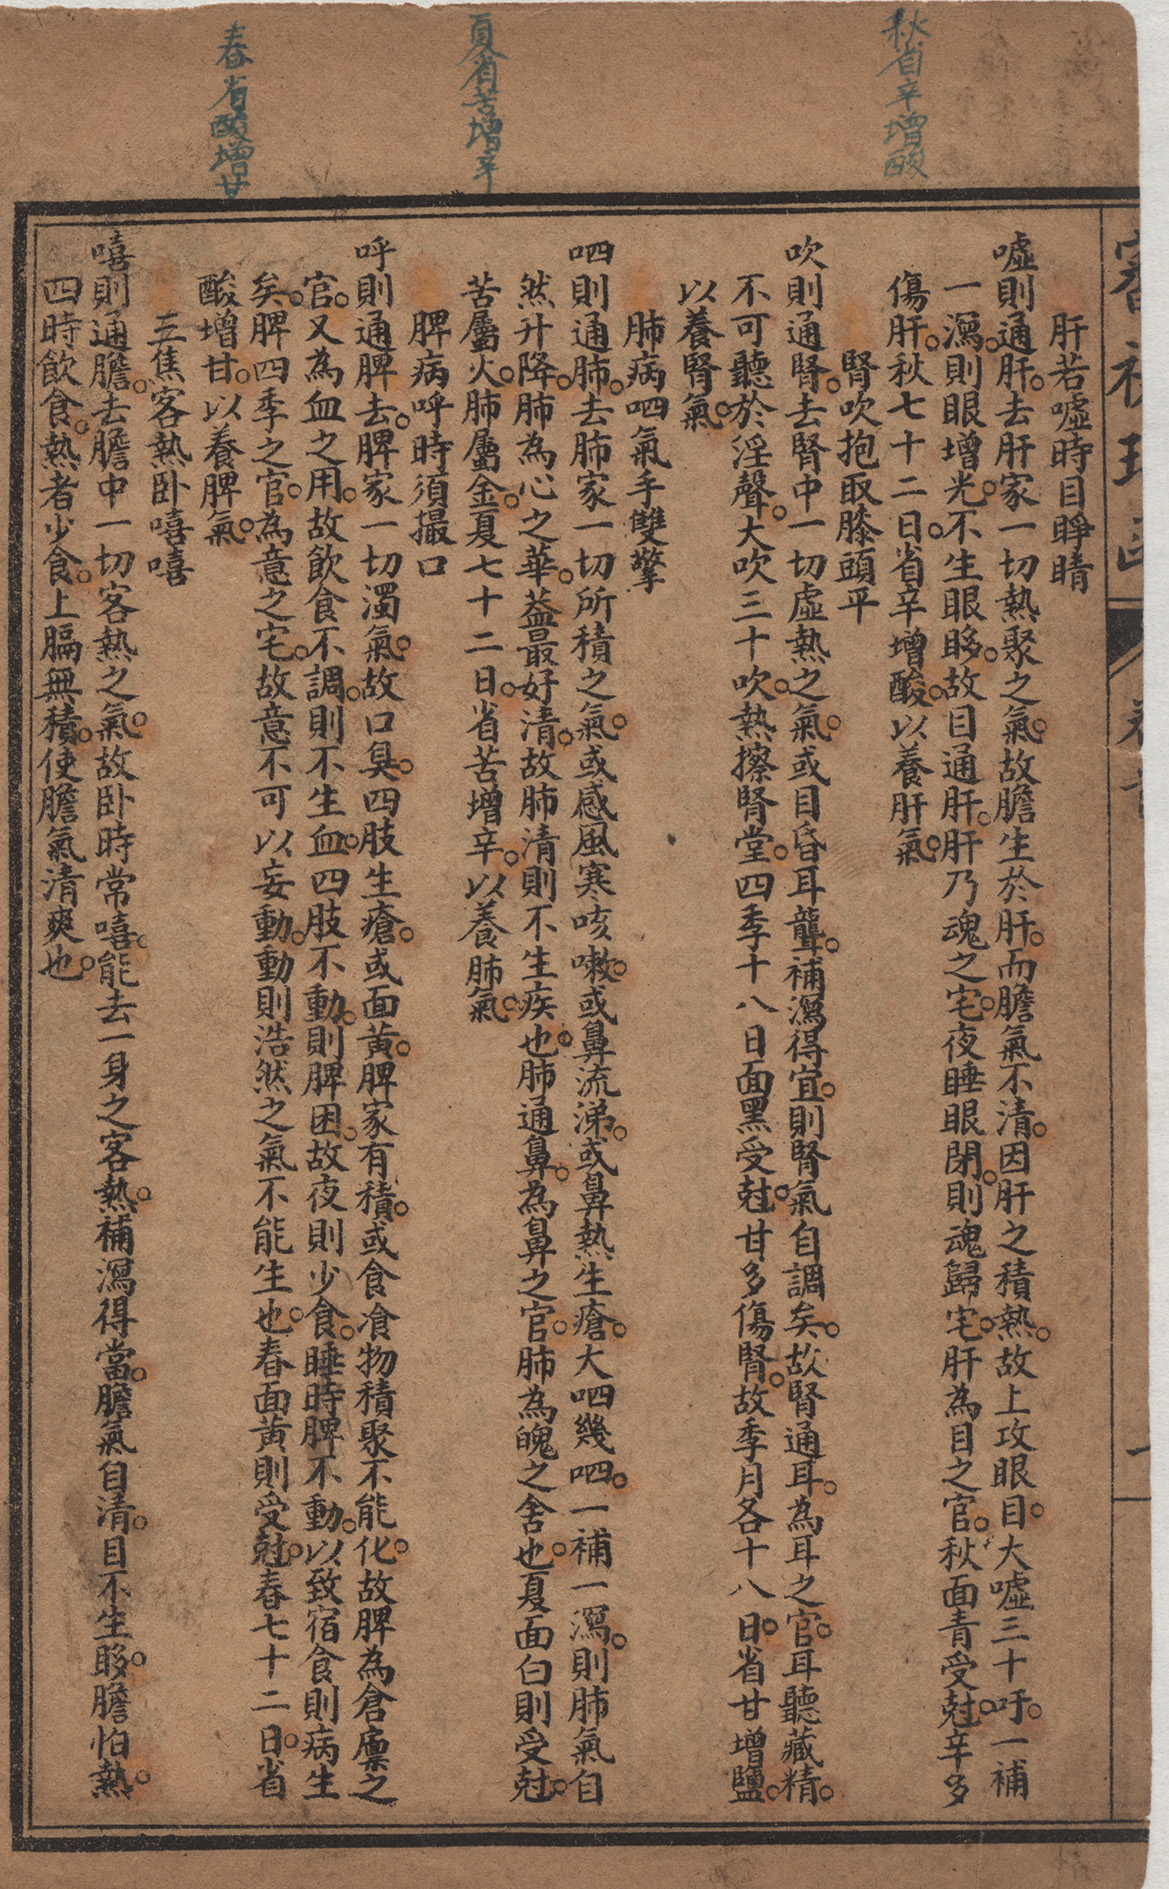 秋省辛增酸
夏省苦增辛
春省酸增甘
肝若噓時目睜睛
噓則通肝。去肝家一切熱聚之氣。故膽生於肝。而膽氣不清。因肝之積熱。故上攻眼目。大噓三十吁。一補
一瀉。則眼增光。不生眼眵。故目通肝。肝乃魂之宅。夜睡眼閉。則魂歸宅。肝為目之官。秋面青受尅。辛多
傷肝。秋七十二日。省辛增酸。以養肝氣。
腎吹抱取膝頭平
吹則通腎。去腎中一切虛熱之氣。或目昏耳聾。補瀉得宜。則腎氣自調矣。故腎通耳。為耳之官。耳聽藏精。
不可聽於淫聲。大吹三十吹。熱擦腎堂。四季十八日面黑受尅。甘多傷腎。故季月各十八日。省甘增鹽。
以養腎氣。
肺病呬氣手雙擎
呬則通肺。去肺家一切所積之氣。或感風寒咳嗽。或鼻流涕。或鼻熱生瘡。大呬幾呬。一補一瀉。則肺氣自
然升降。肺為心之華。蓋最好清。故肺清則不生疾。也肺通鼻。為鼻之官。肺為魄之舍也。夏面白則受尅。
苦屬火。肺屬金。夏七十二日。省苦增辛。以養肺氣。
脾病呼時須撮口
呼則通脾。去脾家一切濁氣。故口臭。四肢生瘡。或面黃。脾家有積。或食飡物積聚不能化。故脾為倉廩之
官。又為血之用。故飲食不調。則不生血。四肢不動。則脾困。故夜則少食。睡時脾不動。以致宿食則病生
矣。脾四季之官。為意之宅。故意不可以妄動。動則浩然之氣不能生也。春面黃則受尅。春七十二日。省
酸增甘。以養脾氣。
三焦客熱卧嘻嘻
嘻則通膽。去膽中一切客熱之氣。故卧時常嘻。能去一身之客熱。補瀉得當。膽氣自清。目不生眵。膽怕熱。
四時飲食。熱者少食。上膈無積。使膽氣清爽也。